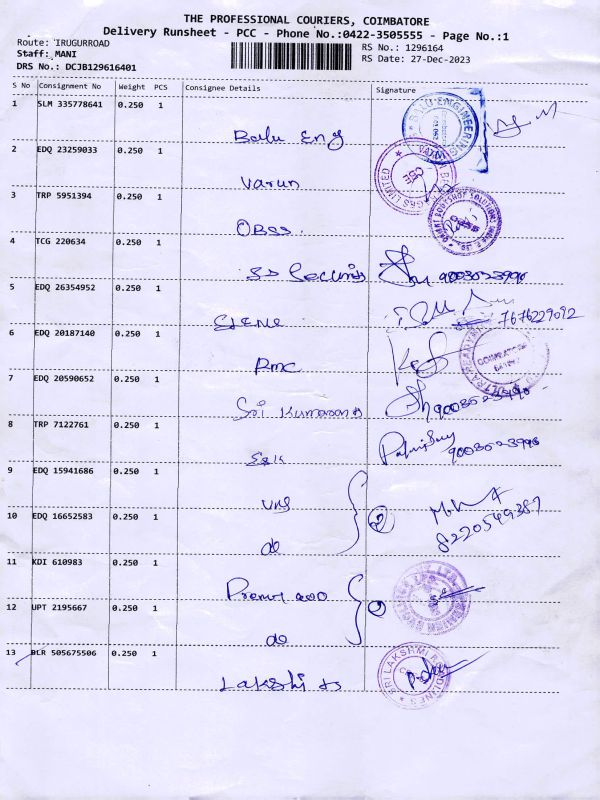 THE PROFESSIONAL COURIERS, COIMBATORE
Delivery Runsheet - PCC - Phone No.:0422-3505555 - Page No.:1
Route: IRUGURROAD
RS No.: 1296164
Staff: MANI
RS Date: 27-Dec-2023
DRS No.: DCJB129616401
S No Consignment No Weight PCS Consignee Details Signature
1 SLM 335778641 0.250 1
BALU ENGINEERING
Balu Eng
2 EDQ 23259033 0.250 1
LIMITED
CBE
Varun
3 TRP 5951394 0.250 1
OBSS.
4 TCG 220634 0.250 1
3D Security 9003023990
5 EDQ 26354952 0.250 1
7676229092
6 EDQ 20187140 0.250 1
COIMBATORE
RMC
7 EDQ 20590652 0.250 1
Sri Kumarans
8 TRP 7122761 0.250 1
9003023990
9 EDQ 15941686 0.250 1
VNG
10 EDQ 16652583 0.250 1
2
8220549387
do
11 KDI 610983 0.250 1
12 UPT 2195667 0.250 1
2
do
13 BLR 505675506 0.250 1
SRI LAKSHMI